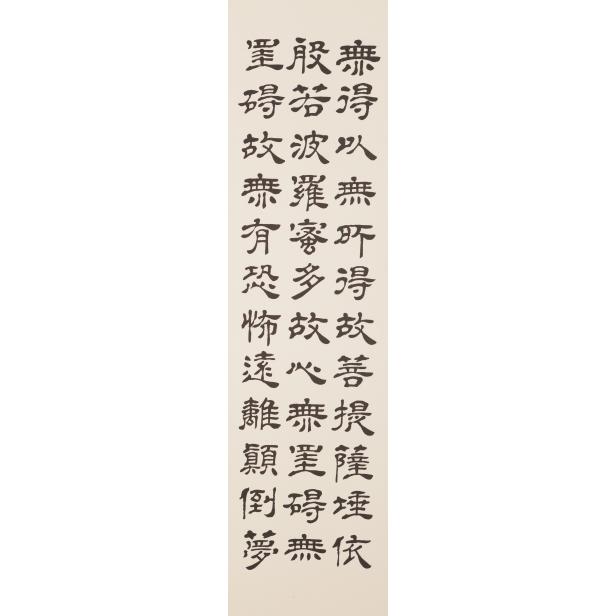 無得以無所得故菩提薩埵依
般若波羅蜜多故心無罣礙無
罣礙故無有恐怖遠離顛倒夢